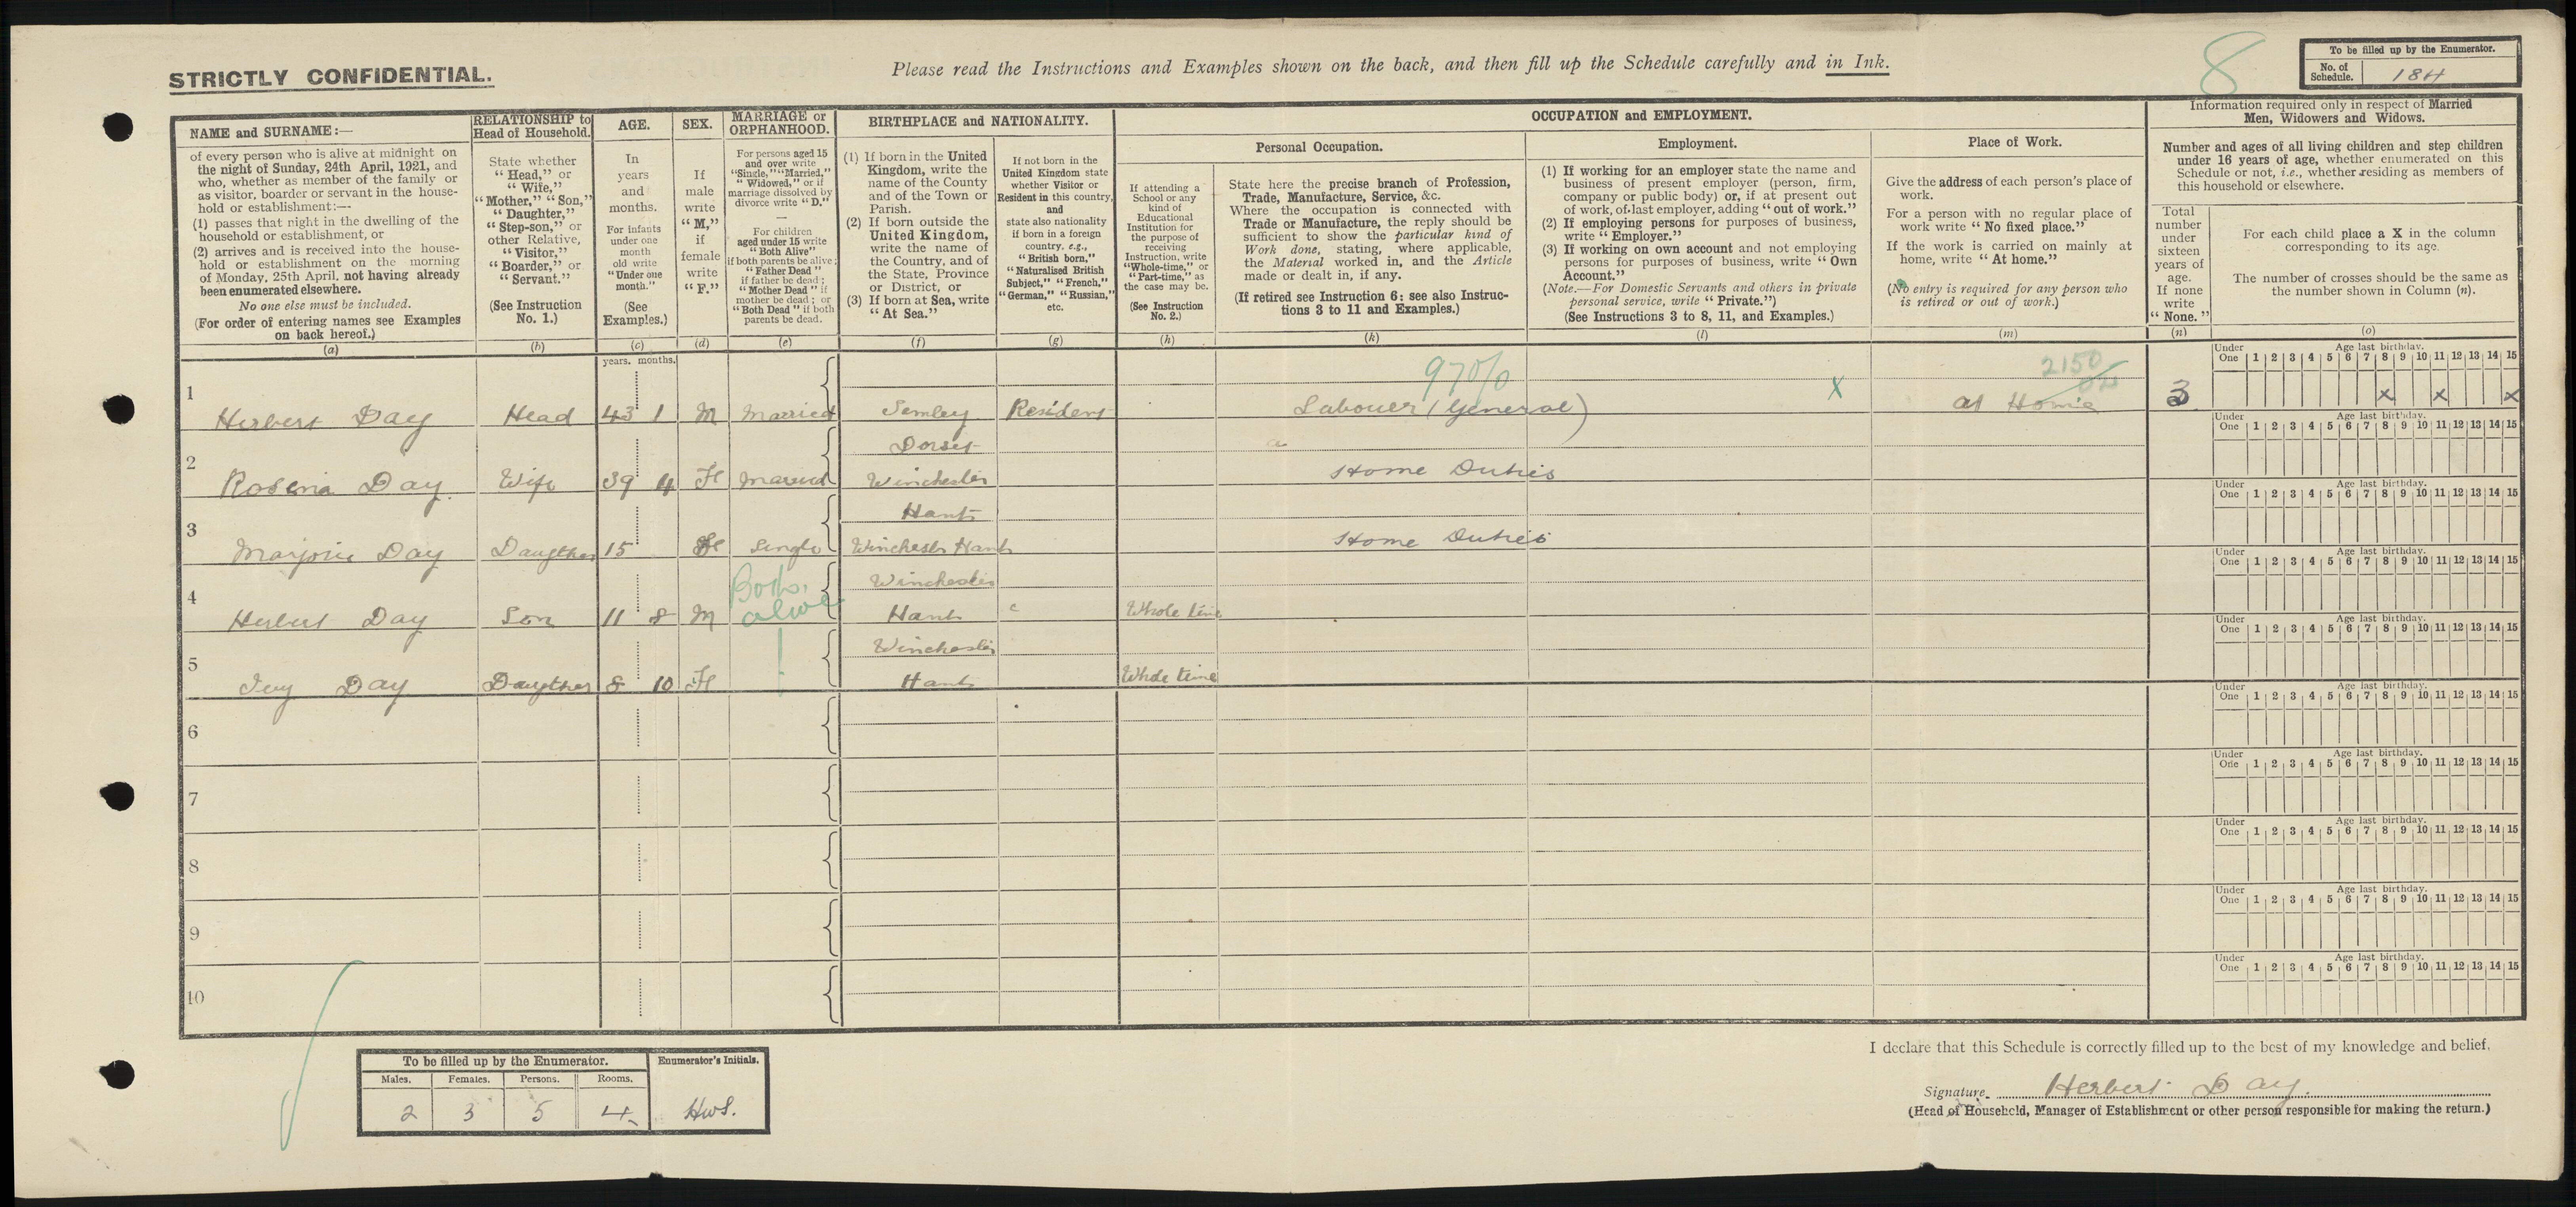 STRICTLY CONFIDENTIAL.
Please read the Instructions and Examples shown on the back, and then fill up the Schedule carefully and in Ink.
8
To be filled up by the Enumerator.
No. of Schedule. 184
NAME and SURNAME:—
of every person who is alive at midnight on
the night of Sunday, 24th April, 1921, and
who, whether as member of the family or
as visitor, boarder or servant in the house-
hold or establishment:—
(1) passes that night in the dwelling of the
household or establishment, or
(2) arrives and is received into the house-
hold or establishment on the morning
of Monday, 25th April, not having already
been enumerated elsewhere.
No one else must be included.
(For order of entering names see Examples
on back hereof.)
(a)
RELATIONSHIP to
Head of Household.
State whether
"Head," or
"Wife,"
"Mother," "Son,"
"Daughter,"
"Step-son," or
other Relative,
"Visitor,"
"Boarder," or
"Servant."
(See Instruction
No. 1.)
(b)
AGE.
In
years
and
months.
For infants
under one
month
old write
"Under one
month."
(See
Examples.)
(c)
SEX.
If
male
write
"M,"
if
female
write
"F."
(d)
MARRIAGE or
ORPHANHOOD.
For persons aged 15
and over write
"Single," "Married,"
"Widowed," or if
marriage dissolved by
divorce write "D."
—
For children
aged under 15 write
"Both Alive"
if both parents be alive;
"Father Dead"
if father be dead;
"Mother Dead" if
mother be dead; or
"Both Dead" if both
parents be dead.
(e)
BIRTHPLACE and NATIONALITY.
(1) If born in the United
Kingdom, write the
name of the County
and of the Town or
Parish.
(2) If born outside the
United Kingdom,
write the name of
the Country, and of
the State, Province
or District, or
(3) If born at Sea, write
"At Sea."
(f)
If not born in the
United Kingdom state
whether Visitor or
Resident in this country,
and
state also nationality
if born in a foreign
country, e.g.,
"British born,"
"Naturalised British
Subject," "French,"
"German," "Russian,"
etc.
(g)
OCCUPATION and EMPLOYMENT.
Personal Occupation.
If attending a
School or any
kind of
Educational
Institution for
the purpose of
receiving
Instruction, write
"Whole-time," or
"Part-time," as
the case may be.
(See Instruction
No. 2.)
(h)
State here the precise branch of Profession,
Trade, Manufacture, Service, &c.
Where the occupation is connected with
Trade or Manufacture, the reply should be
sufficient to show the particular kind of
Work done, stating, where applicable,
the Material worked in, and the Article
made or dealt in, if any.
(If retired see Instruction 6; see also Instruc-
tions 3 to 11 and Examples.)
(k)
Employment.
(1) If working for an employer state the name and
business of present employer (person, firm,
company or public body) or, if at present out
of work, of last employer, adding "out of work."
(2) If employing persons for purposes of business,
write "Employer."
(3) If working on own account and not employing
persons for purposes of business, write "Own
Account."
(Note.—For Domestic Servants and others in private
personal service, write "Private.")
(See Instructions 3 to 8, 11, and Examples.)
(l)
Place of Work.
Give the address of each person's place of
work.
For a person with no regular place of
work write "No fixed place."
If the work is carried on mainly at
home, write "At home."
(No entry is required for any person who
is retired or out of work.)
(m)
Information required only in respect of Married
Men, Widowers and Widows.
Number and ages of all living children and step children
under 16 years of age, whether enumerated on this
Schedule or not, i.e., whether residing as members of
this household or elsewhere.
Total
number
under
sixteen
years of
age.
If none
write
"None."
(n)
For each child place a X in the column
corresponding to its age.
The number of crosses should be the same as
the number shown in Column (n).
(o)
years. months.
Under One Age last birthday. 1 2 3 4 5 6 7 8 9 10 11 12 13 14 15
970/0 2150
1 Herbert Day Head 43 1 M Married Semley Resident Labouer (General) x at Home 3 x x x
Under One Age last birthday. 1 2 3 4 5 6 7 8 9 10 11 12 13 14 15
Dorset
2 Rosena Day. Wife 39 4 F Married Winchester Home Duties
Under One Age last birthday. 1 2 3 4 5 6 7 8 9 10 11 12 13 14 15
Hants
3 Marjorie Day Daugther 15 F Single Winchester Hants Home Duties
Under One Age last birthday. 1 2 3 4 5 6 7 8 9 10 11 12 13 14 15
Both Winchester
4 Herbert Day Son 11 8 M alive Hants Whole time
Under One Age last birthday. 1 2 3 4 5 6 7 8 9 10 11 12 13 14 15
Winchester
5 Ivy Day Daugther 8 10 F Hants Whole time
Under One Age last birthday. 1 2 3 4 5 6 7 8 9 10 11 12 13 14 15
6
Under One Age last birthday. 1 2 3 4 5 6 7 8 9 10 11 12 13 14 15
7
Under One Age last birthday. 1 2 3 4 5 6 7 8 9 10 11 12 13 14 15
8
Under One Age last birthday. 1 2 3 4 5 6 7 8 9 10 11 12 13 14 15
9
Under One Age last birthday. 1 2 3 4 5 6 7 8 9 10 11 12 13 14 15
10
To be filled up by the Enumerator. Enumerator's Initials.
Males. Females. Persons. Rooms.
2 3 5 4 HWS.
I declare that this Schedule is correctly filled up to the best of my knowledge and belief.
Signature Herbert Day.
(Head of Household, Manager of Establishment or other person responsible for making the return.)